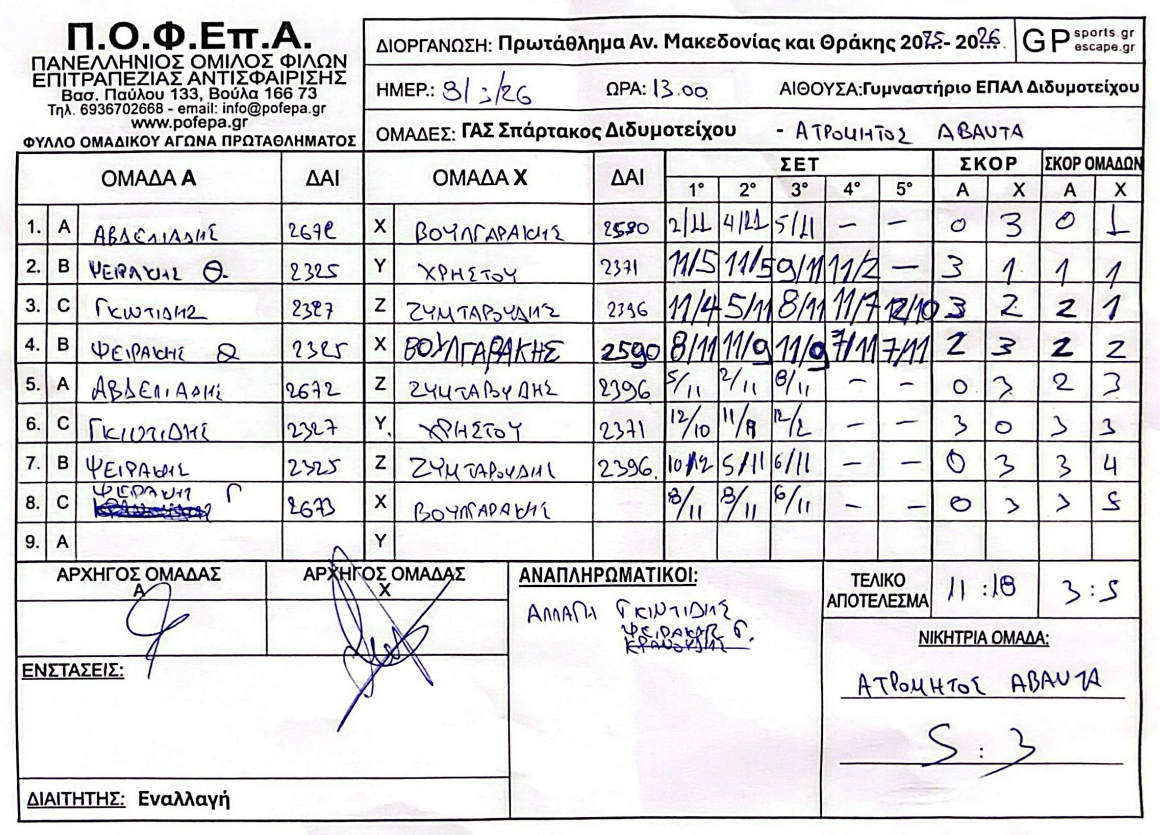 Π.Ο.Φ.Επ.Α.
ΠΑΝΕΛΛΗΝΙΟΣ ΟΜΙΛΟΣ ΦΙΛΩΝ
ΕΠΙΤΡΑΠΕΖΙΑΣ ΑΝΤΙΣΦΑΙΡΙΣΗΣ
Βασ. Παύλου 133, Βούλα 166 73
Τηλ. 6936702668 - email: info@pofepa.gr
www.pofepa.gr
ΦΥΛΛΟ ΟΜΑΔΙΚΟΥ ΑΓΩΝΑ ΠΡΩΤΑΘΛΗΜΑΤΟΣ
ΔΙΟΡΓΑΝΩΣΗ: Πρωτάθλημα Αν. Μακεδονίας και Θράκης 2025- 2026 GP sports.gr escape.gr
ΗΜΕΡ.: 8/3/26 ΩΡΑ: 13.00 ΑΙΘΟΥΣΑ: Γυμναστήριο ΕΠΑΛ Διδυμοτείχου
ΟΜΑΔΕΣ: ΓΑΣ Σπάρτακος Διδυμοτείχου - ΑΤΡΟΜΗΤΟΣ ΑΒΑΝΤΑ
ΟΜΑΔΑ Α ΔΑΙ ΟΜΑΔΑ Χ ΔΑΙ ΣΕΤ ΣΚΟΡ ΣΚΟΡ ΟΜΑΔΩΝ
1° 2° 3° 4° 5° Α Χ Α Χ
1. A ΑΒΔΕΛΙΑΔΗΣ 2672 X ΒΟΥΛΓΑΡΑΚΗΣ 2590 2/11 4/11 5/11 - - 0 3 0 1
2. B ΨΕΙΡΑΚΗΣ Θ. 2325 Y ΧΡΗΣΤΟΥ 2371 11/5 11/5 9/11 11/2 - 3 1 1 1
3. C ΓΚΙΝΤΙΔΗΣ 2327 Z ΖΥΜΤΑΡΟΥΔΗΣ 2396 11/4 5/11 8/11 11/7 12/10 3 2 2 1
4. B ΨΕΙΡΑΚΗΣ Θ 2325 X ΒΟΥΛΓΑΡΑΚΗΣ 2590 8/11 11/9 11/9 7/11 7/11 2 3 2 2
5. A ΑΒΔΕΛΙΑΔΗΣ 2672 Z ΖΥΜΤΑΡΟΥΔΗΣ 2396 5/11 2/11 8/11 - - 0 3 2 3
6. C ΓΚΙΝΤΙΔΗΣ 2327 Y ΧΡΗΣΤΟΥ 2371 12/10 11/9 12/2 - - 3 0 3 3
7. B ΨΕΙΡΑΚΗΣ 2325 Z ΖΥΜΤΑΡΟΥΔΗΣ 2396 10/12 5/11 6/11 - - 0 3 3 4
8. C ΨΕΙΡΑΚΗΣ Γ 2673 X ΒΟΥΛΓΑΡΑΚΗΣ 8/11 8/11 6/11 - - 0 3 3 5
9. A Y
ΑΡΧΗΓΟΣ ΟΜΑΔΑΣ Α ΑΡΧΗΓΟΣ ΟΜΑΔΑΣ Χ
ΑΝΑΠΛΗΡΩΜΑΤΙΚΟΙ:
ΑΛΛΑΓΗ ΓΚΙΝΤΙΔΗΣ
ΨΕΙΡΑΚΗΣ Γ.
ΤΕΛΙΚΟ ΑΠΟΤΕΛΕΣΜΑ 11:18 3:5
ΝΙΚΗΤΡΙΑ ΟΜΑΔΑ:
ΑΤΡΟΜΗΤΟΣ ΑΒΑΝΤΑ
5:3
ΕΝΣΤΑΣΕΙΣ:
ΔΙΑΙΤΗΤΗΣ: Εναλλαγή